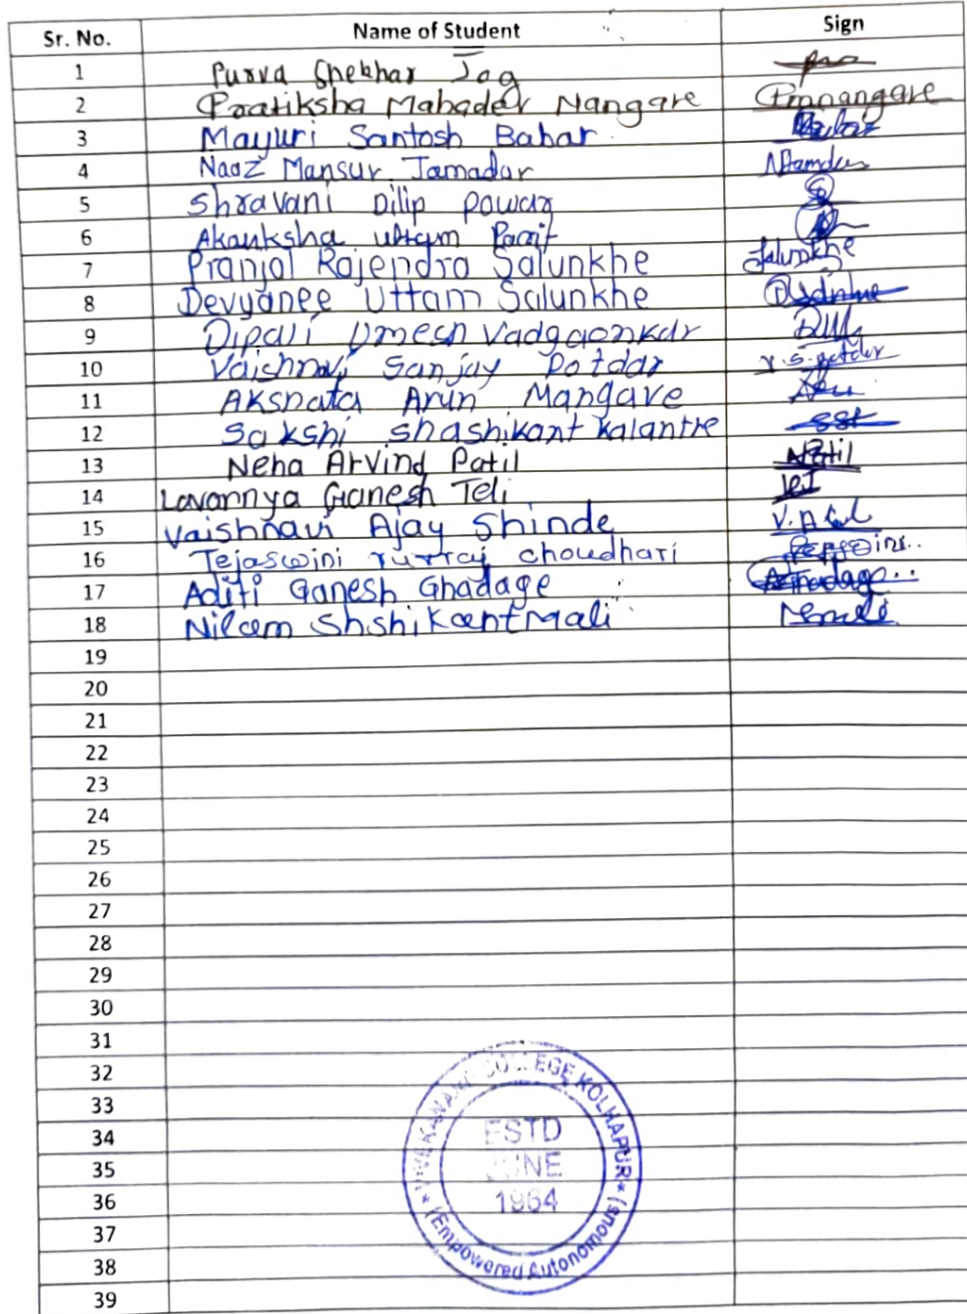 Sr. No. Name of Student Sign
1 Purva Shekhar Jog
2 Pratiksha Mahadev Nangare Pmnangare
3 Mayuri Santosh Babar
4 Naaz Mansur Jamadar
5 Shravani Dilip Powar
6 Akanksha uttam Parit
7 Pranjal Rajendra Salunkhe Salunkhe
8 Devyanee Uttam Salunkhe
9 Dipali Umesh Vadgaonkar
10 Vaishnavi Sanjay Potdar v.s.potdar
11 Akshata Arun Mangave
12 Sakshi shashikant kalantre SSK
13 Neha Arvind Patil NPatil
14 Lavannya Ganesh Teli
15 Vaishnavi Ajay Shinde
16 Tejaswini choudhari
17 Aditi Ganesh Ghadage
18 Nilam Shshikant Mali
19
20
21
22
23
24
25
26
27
28
29
30
31
32
33
34
35
36
37
38
39
VIVEKANAND COLLEGE KOLHAPUR
ESTD
JUNE
1964
(Empowered Autonomous)